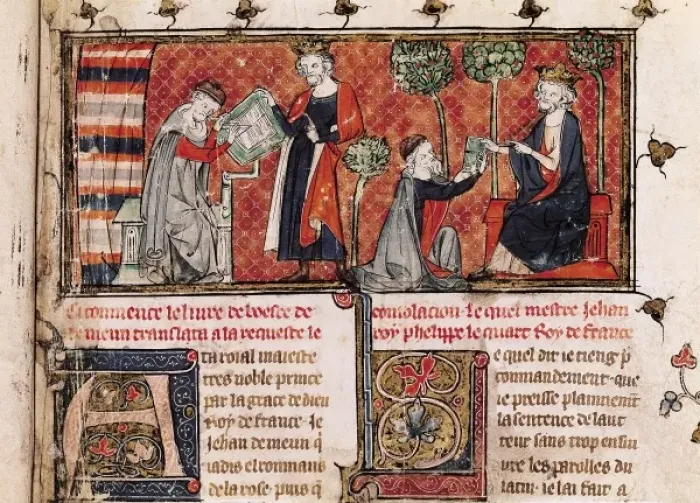 Ci commence le livre de boesce de consolacion. le quel mestre Jehan
de meun translata a la requeste le roy phelippe le quart Roy de france
A ta roial maieste
tres noble prince
par la grace de dieu
Roy de france. Je
Jehan de meun q
iadis el rommans
de la rose. puis q
Le quel dit ie tieng p
commandement. que
ie preisse plainnent
la sentence de laut
teur sans trop ensiu
vre les parolles du
latin. ie lai fait a